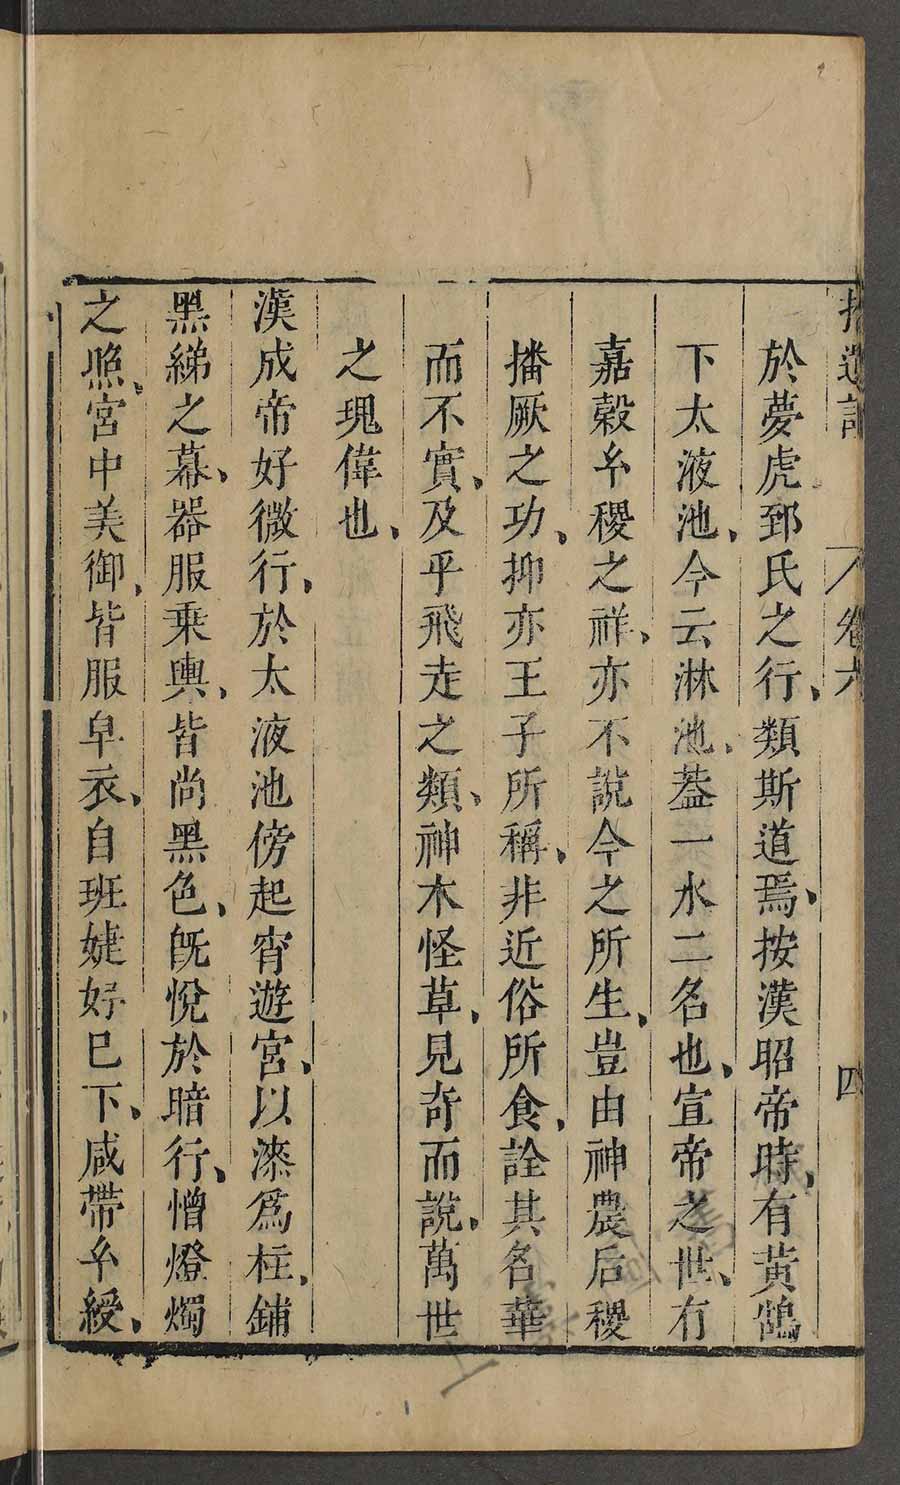 拾遺記 卷六 四
於夢虎郅氏之行、類斯道焉、按漢昭帝時、有黃鵠
下太液池、今云淋池、葢一水二名也、宣帝之世、有
嘉穀玄稷之祥、亦不說今之所生、豈由神農后稷
播厥之功、抑亦王子所稱、非近俗所食、詮其名華
而不實、及乎飛走之類、神木怪草、見奇而說、萬世
之瑰偉也、
漢成帝好微行、於太液池傍起宵遊宮、以漆爲柱、鋪
黑綈之幕、器服乘輿、皆尚黑色、旣悅於暗行、憎燈燭
之照、宮中美御、皆服皁衣、自班婕妤已下、咸帶玄綬、